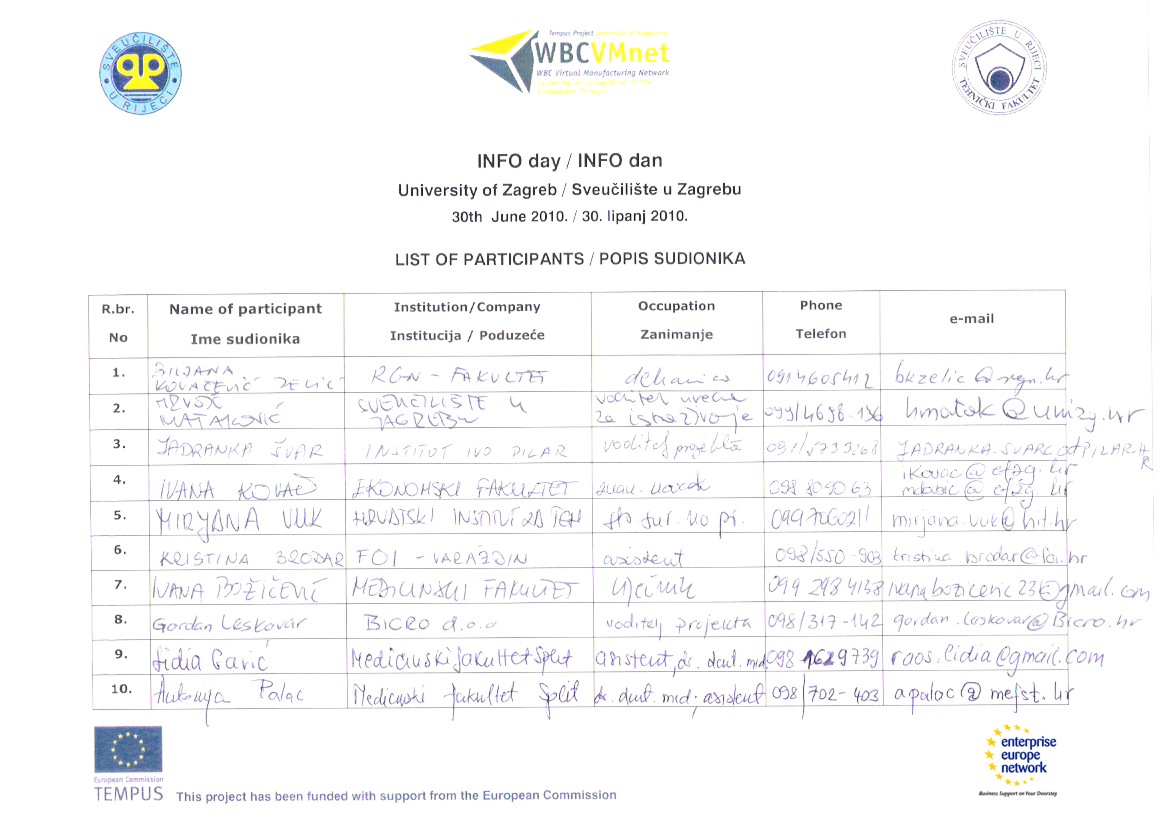 SVEUČILIŠTE U RIJECI
Tempus Project
WBCVMnet
WBC Virtual Manufacturing Network
SVEUČILIŠTE U RIJECI
TEHNIČKI FAKULTET
INFO day / INFO dan
University of Zagreb / Sveučilište u Zagrebu
30th June 2010. / 30. lipanj 2010.
LIST OF PARTICIPANTS / POPIS SUDIONIKA
R.br. Name of participant Institution/Company Occupation Phone e-mail
No Ime sudionika Institucija / Poduzeće Zanimanje Telefon
1. BILJANA KOVAČEVIĆ ZELIĆ RGN - FAKULTET dekanica 0914605412 bkzelic@rgn.hr
2. HRVOJE SVEUČILIŠTE U ZAGREBU voditelj ureda za 099/4698-136 hmatak@unizg.hr
3. JADRANKA ŠVARC INSTITUT IVO PILAR voditelj projekta
4. IVANA KOVAČ EKONOMSKI FAKULTET ikovac@efzg.hr
5. MIRJANA VUK HRVATSKI INSTITUT ZA TEH mirjana.vuk@hit.hr
6. KRISTINA BRODAR FOI - VARAŽDIN asistent 098/550-903 kristina.brodar@foi.hr
7. IVANA BOŽIČEVIĆ MEDICINSKI FAKULTET 099 298 4138 ivanabozicevic23@gmail.com
8. Gordan Leskovar BICRO d.o.o voditelj projekta 098/317-142 gordan.leskovar@Bicro.hr
9. Lidia Gavić Medicinski fakultet Split asistent, dr. dent. med 098 1629739 raos.lidia@gmail.com
10. Antonija Palac Medicinski fakultet Split dr. dent. med; asistent 098/702-403 apalac@mefst.hr
European Commission
TEMPUS
This project has been funded with support from the European Commission
enterprise
europe
network
Business Support on Your Doorstep